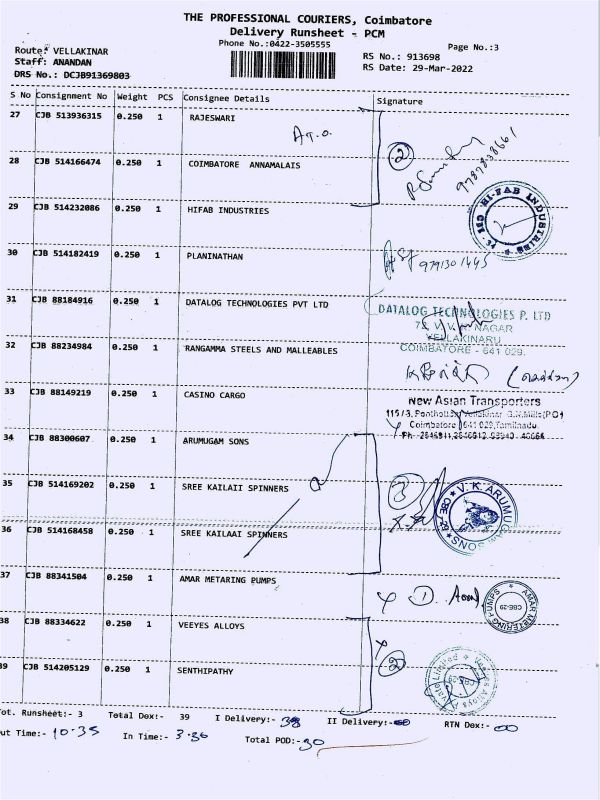 THE PROFESSIONAL COURIERS, Coimbatore
Delivery Runsheet - PCM
Phone No.:0422-3505555
Page No.:3
Route: VELLAKINAR
RS No.: 913698
Staff: ANANDAN
RS Date: 29-Mar-2022
DRS No.: DCJB91369803
S No Consignment No Weight PCS Consignee Details Signature
27 CJB 513936315 0.250 1 RAJESWARI
2
9787838661
28 CJB 514166474 0.250 1 COIMBATORE ANNAMALAIS
29 CJB 514232086 0.250 1 HIFAB INDUSTRIES
HI-FAB INDUSTRIES
30 CJB 514182419 0.250 1 PLANINATHAN
9791301445
31 CJB 88184916 0.250 1 DATALOG TECHNOLOGIES PVT LTD
DATALOG TECHNOLOGIES P. LTD
NAGAR
VELLAKINARU
COIMBATORE - 641 029.
32 CJB 88234984 0.250 1 RANGAMMA STEELS AND MALLEABLES
33 CJB 88149219 0.250 1 CASINO CARGO
New Asian Transporters
Coimbatore 641 029, Tamilnadu.
34 CJB 88300607 0.250 1 ARUMUGAM SONS
35 CJB 514169202 0.250 1 SREE KAILAII SPINNERS
3
V.K. ARUMUGAM SONS
CBE-29
36 CJB 514168458 0.250 1 SREE KAILAAI SPINNERS
37 CJB 88341504 0.250 1 AMAR METARING PUMPS
AMAR METERING PUMPS
CBE-29
38 CJB 88334622 0.250 1 VEEYES ALLOYS
2
39 CJB 514205129 0.250 1 SENTHIPATHY
Tot. Runsheet:- 3 Total Dox:- 39 I Delivery:- 39 II Delivery:- 00 RTN Dox:- 00
Out Time:- 10-35 In Time:- 3-30 Total POD:- 30